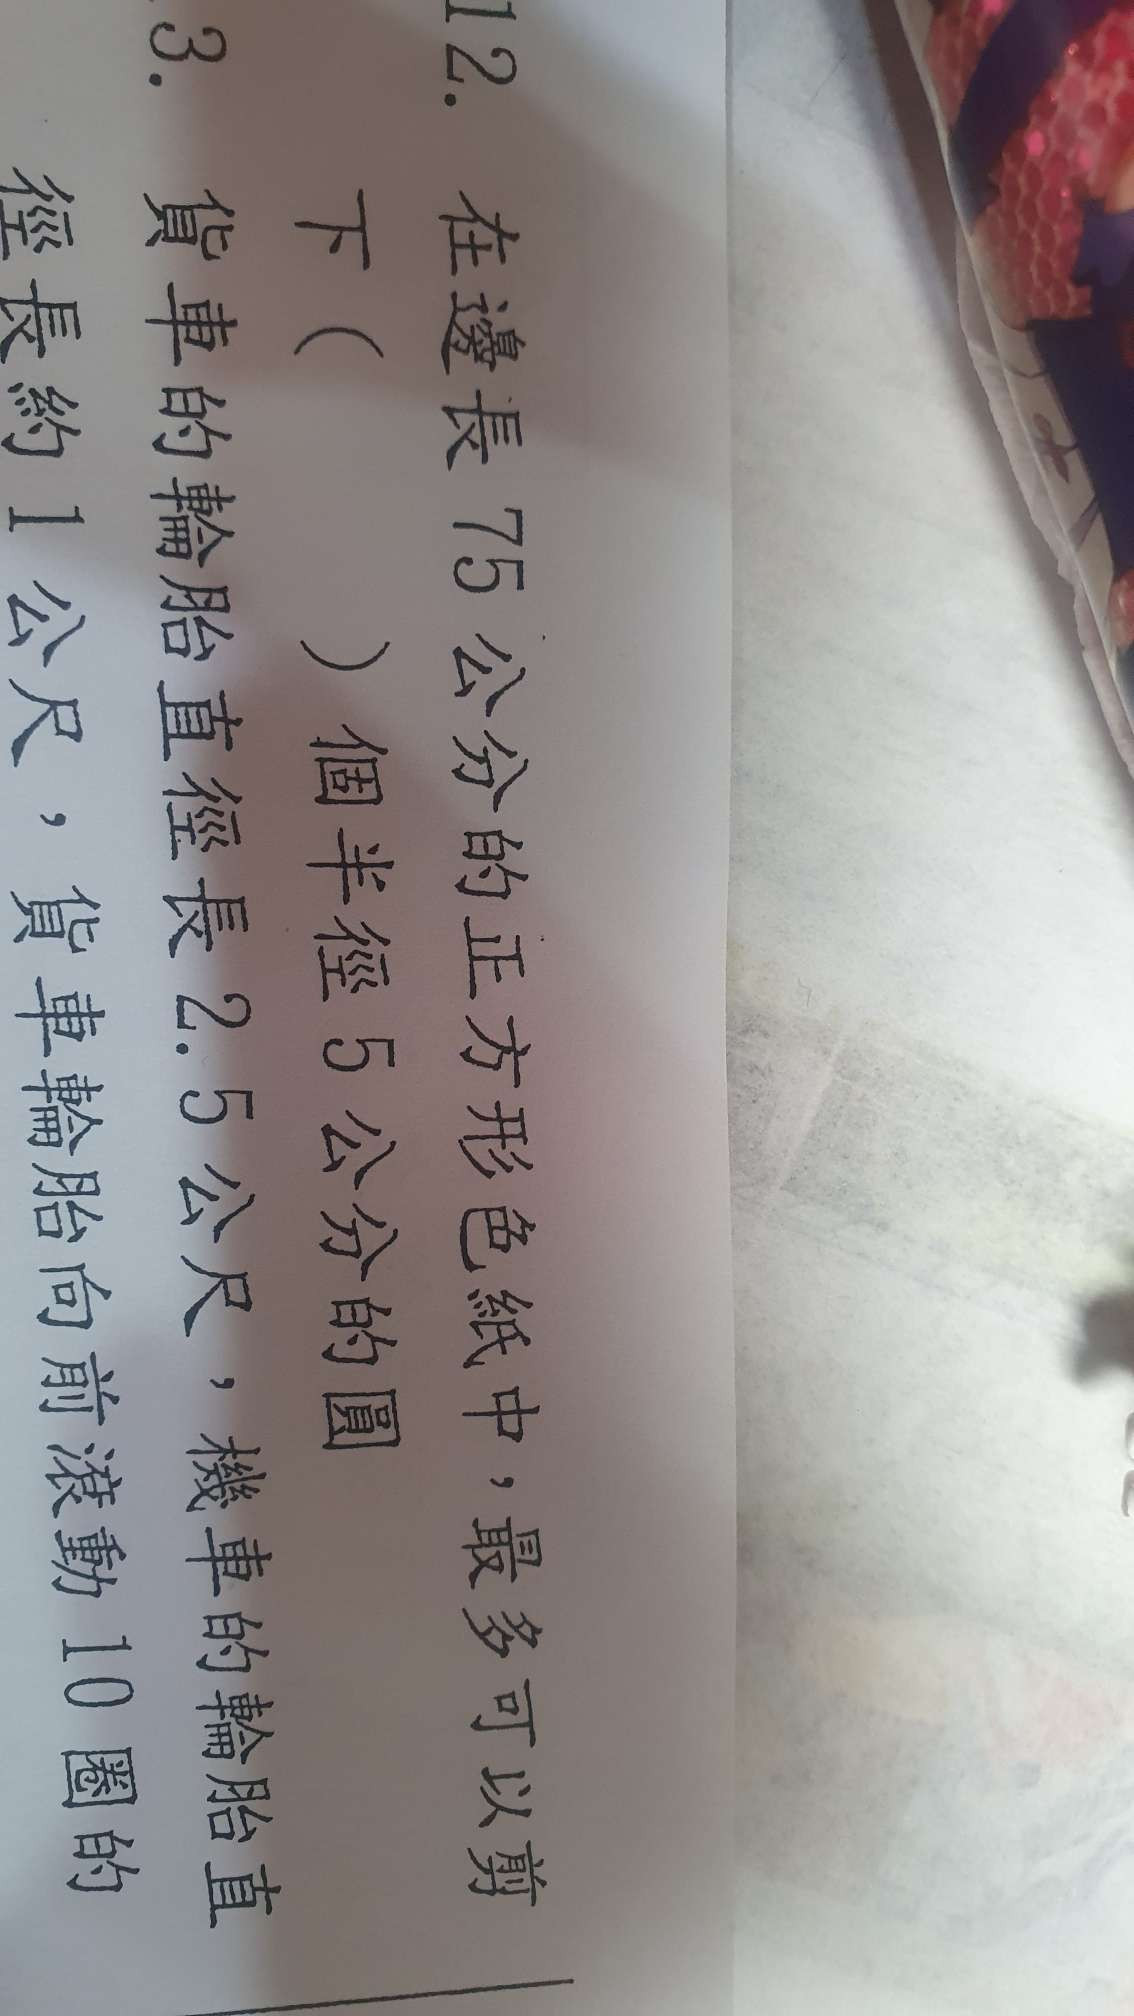 12. 在邊長 75 公分的正方形色紙中，最多可以剪
下（　　）個半徑 5 公分的圓
3. 貨車的輪胎直徑長 2.5 公尺，機車的輪胎直
徑長約 1 公尺，貨車輪胎向前滾動 10 圈的